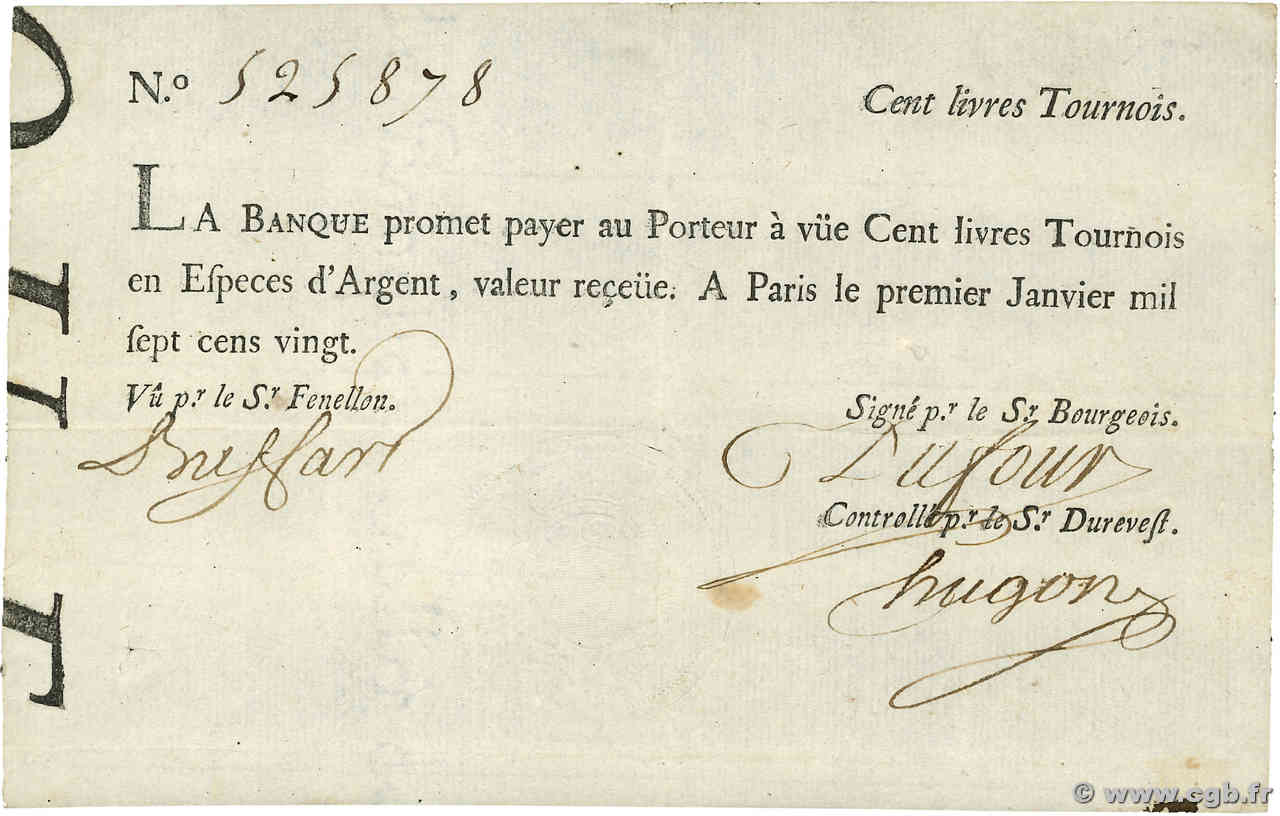 N.º 525878
Cent livres Tournois.
LA BANQUE promet payer au Porteur à vüe Cent livres Tournois
en Eſpeces d'Argent, valeur reçeüe. A Paris le premier Janvier mil
ſept cens vingt.
Vû p.r le S.r Fenellon.
Signé p.r le S.r Bourgeois.
Dufour
Controllé p.r le S.r Dureveſt.
hugon
© www.cgb.fr